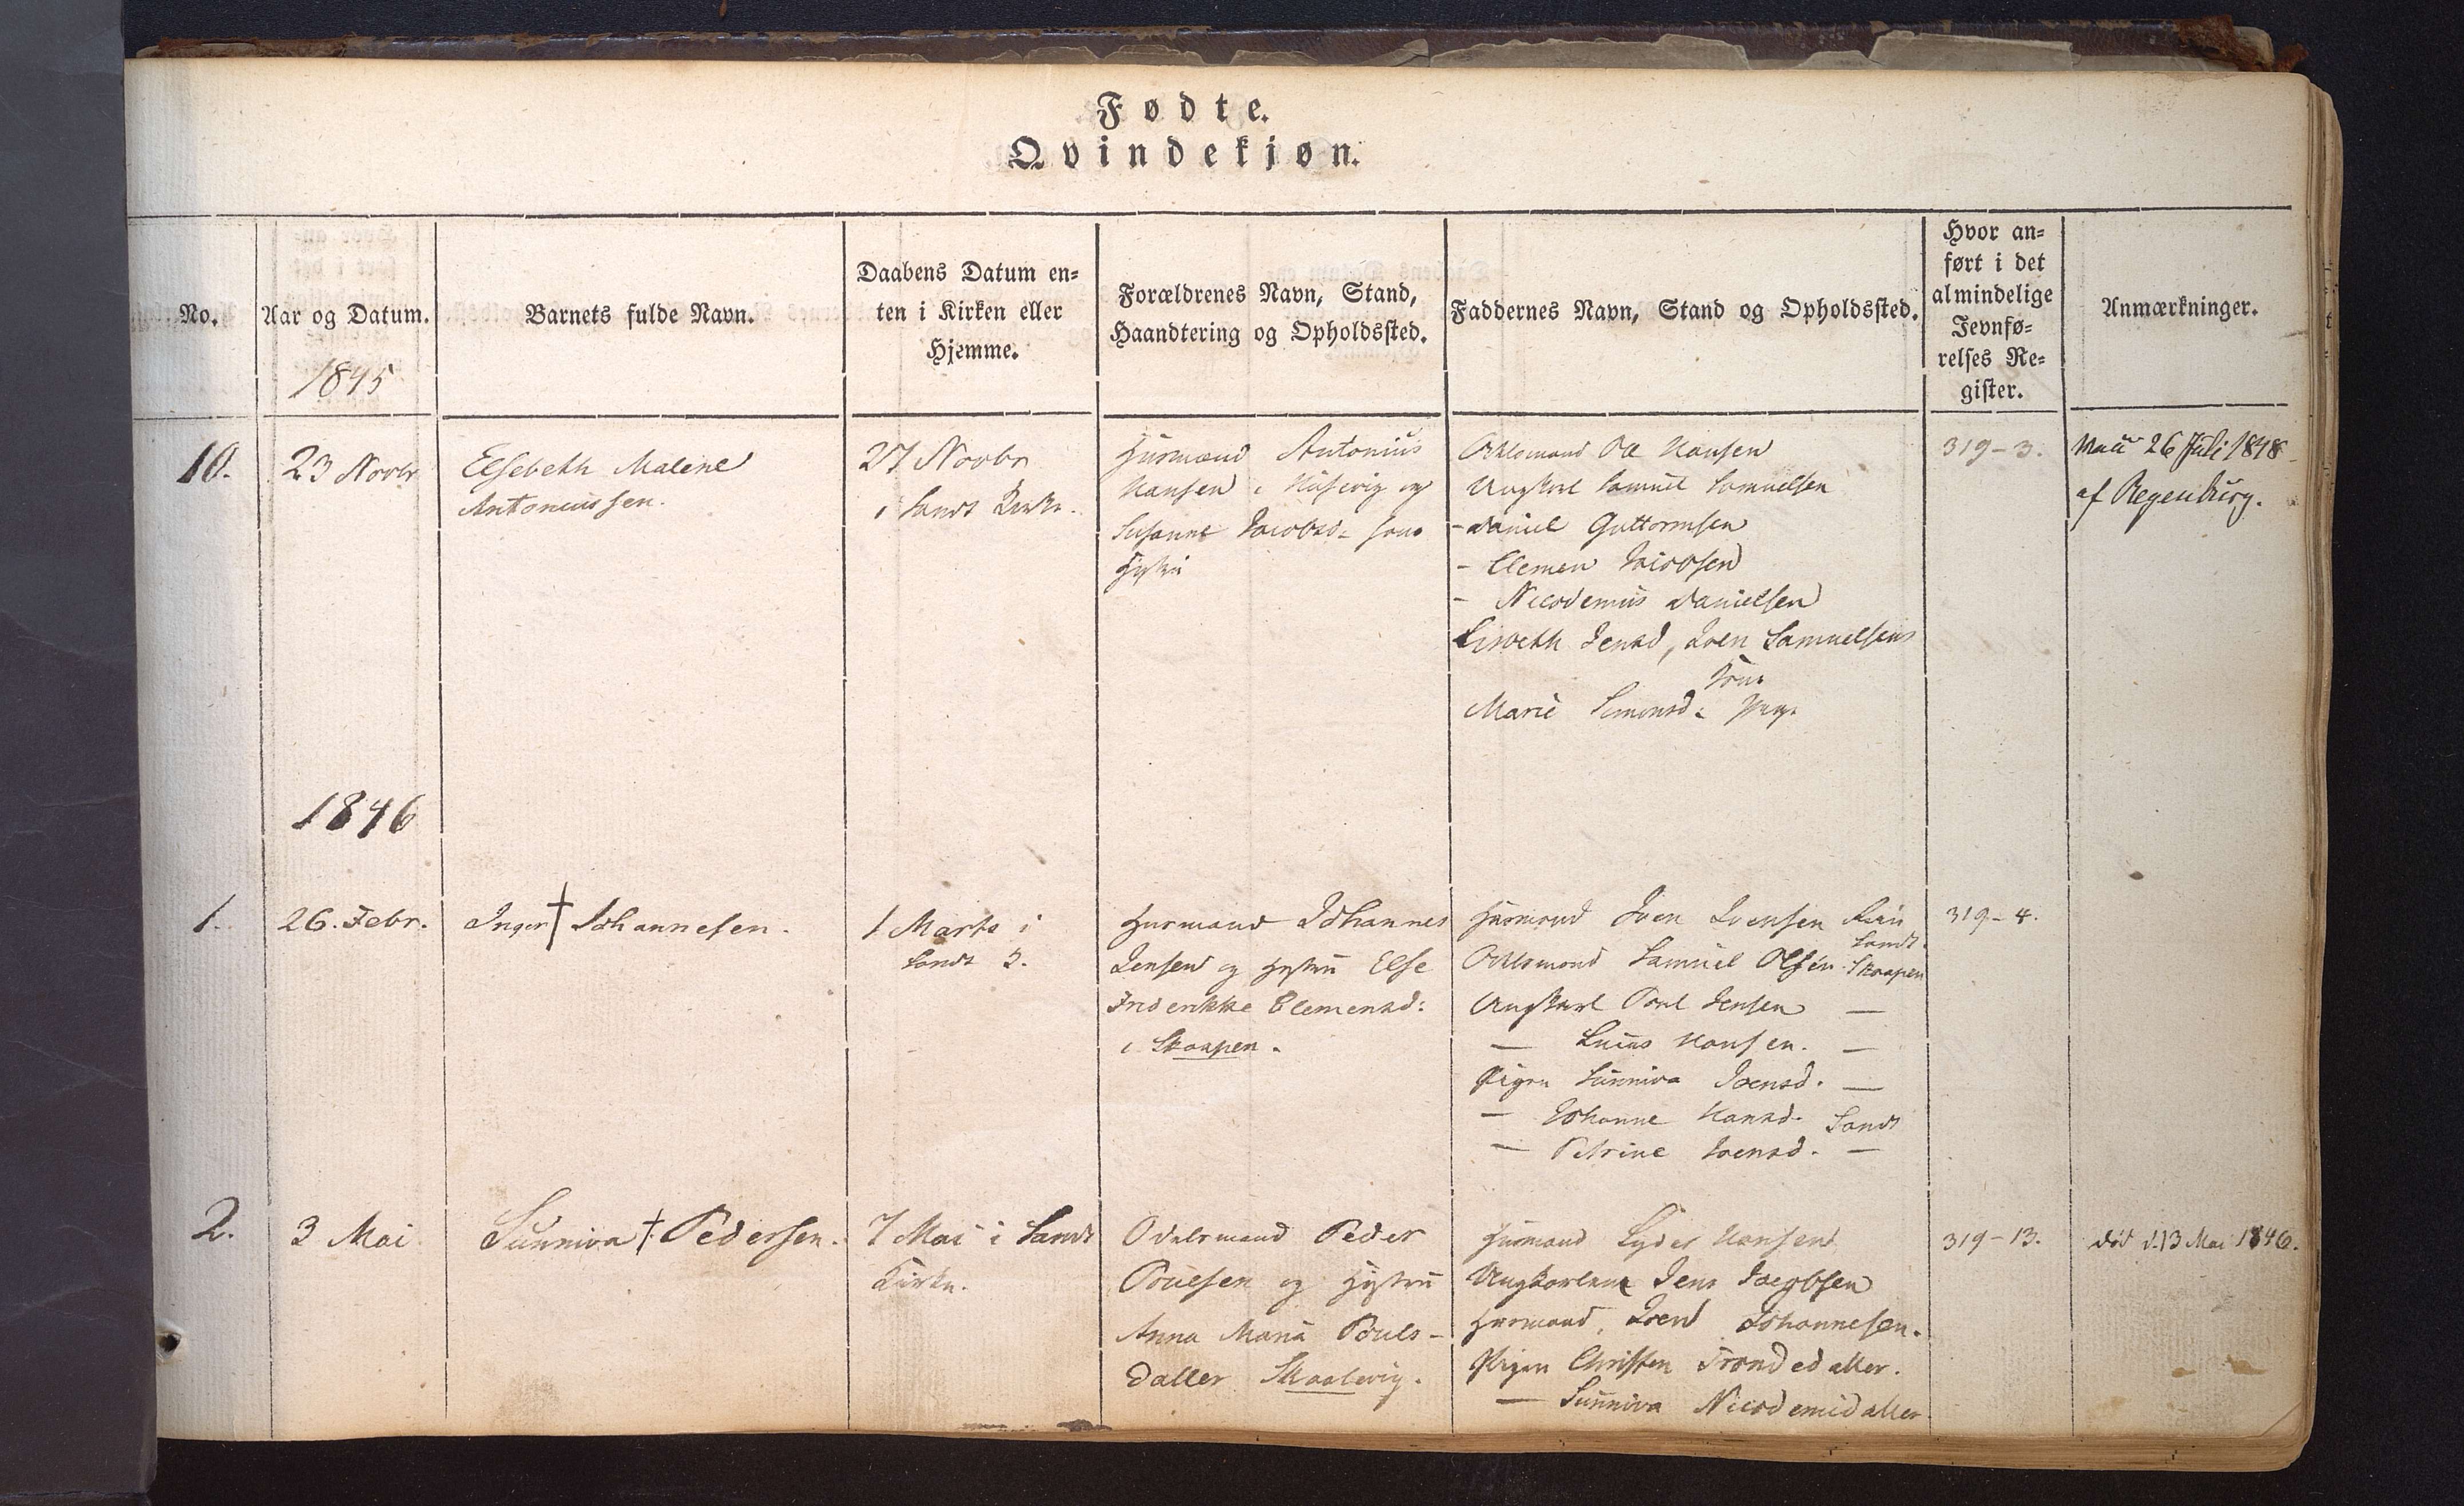 Fødte.
Qvindekjøn.
No.
Aar og Datum.
1845
Barnets fulde Navn.
Daabens Datum en-
ten i Kirken eller
Hjemme.
Forældrenes Navn, Stand,
Haandtering og Opholdssted.
Faddernes Navn, Stand og Opholdssted.
Hvor an-
ført i det
almindelige
Jevnfø-
relses Re-
gister.
Anmærkninger.
10.
23 Novbr
Elsebeth Malene
Antoniussen.
27 Novbr
i Sands Kirke.
Huusmand Antonius
Hansen i Húsevig og
Susanne Jacobsd- hans
Hustru
Odelsmand Ole Hansen
Ungkarl Samuel Samuelsen
- Daniel Guttormsen
- Clemen Jacobsen
- Nicodemus Danielsen
Lisbeth Jensd, Joen Samuelsens
Kone
Marie Simonsd: Pige
319-3.
Vacc 26 Juli 1848
af Regenburg.
1846
1.
26. Febr.
Inger † Johannesen.
1 Marts i
Sands K.
Huusmand Johannes
Jensen og Hustru Else
Friderikke Clemensd:
i Skaapen.
Huusmand Joen Joensen
Sand.
Odelsmand Samuel Olsen Skaapen
Ungkarl Poul Jensen —
— Lucas Hansen. —
Pigen Sunniva Joensd. —
— Johanne Hansd. Sand
— Petrine Joensd. —
319-4.
2.
3 Mai
Sunniva † Pedersen.
7 Mai i Sands
Kirke.
Odelsmand Peder
Poulsen og Hústrú
Anna Maria Pouls-
datter Skaalevig.
Huusmand Hansen
Ungkarlene Jens Jacobsen
Huusmand, Joen Johannesen.
Pigen Christen Trondedatter.
— Sunniva Nicodemidatter
319-13.
død d.13 Mai 1846.